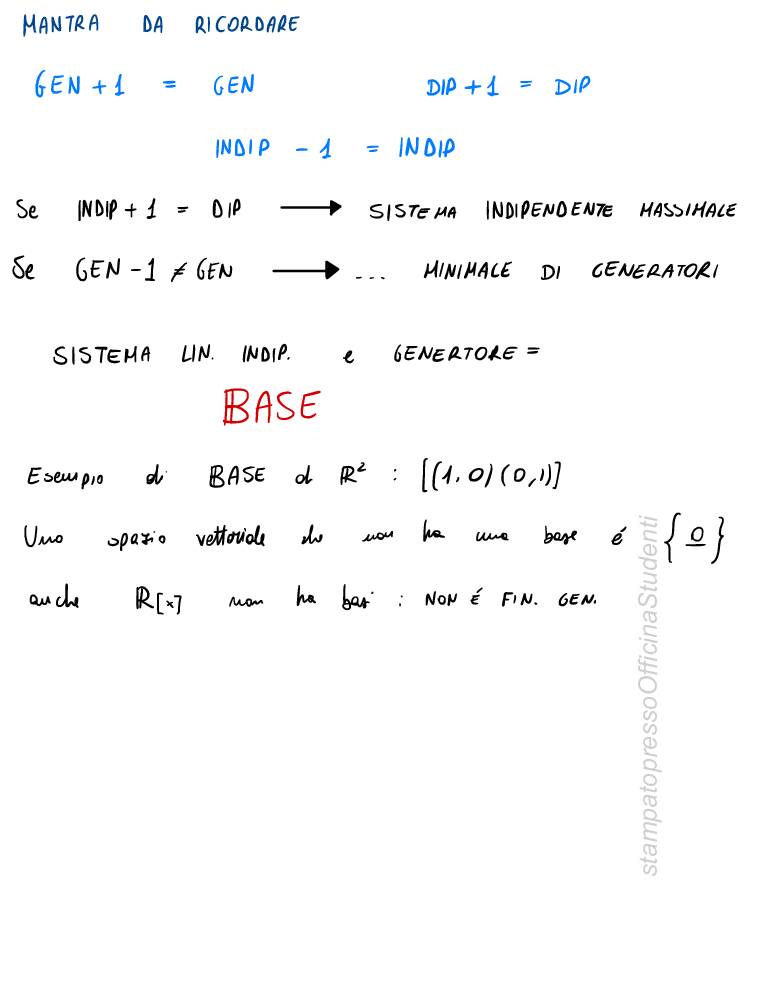 MANTRA DA RICORDARE
GEN + 1 = GEN DIP + 1 = DIP
INDIP - 1 = INDIP
Se INDIP + 1 = DIP → SISTEMA INDIPENDENTE MASSIMALE
Se GEN - 1 ≠ GEN → ... MINIMALE DI GENERATORI
SISTEMA LIN. INDIP. e GENERTORE =
BASE
Esempio di BASE d ℝ² : [(1,0)(0,1)]
Uno spazio vettoriale che non ha una base é {0}
anche ℝ[x] non ha basi : NON É FIN. GEN.
stampatopressoOfficinaStudenti